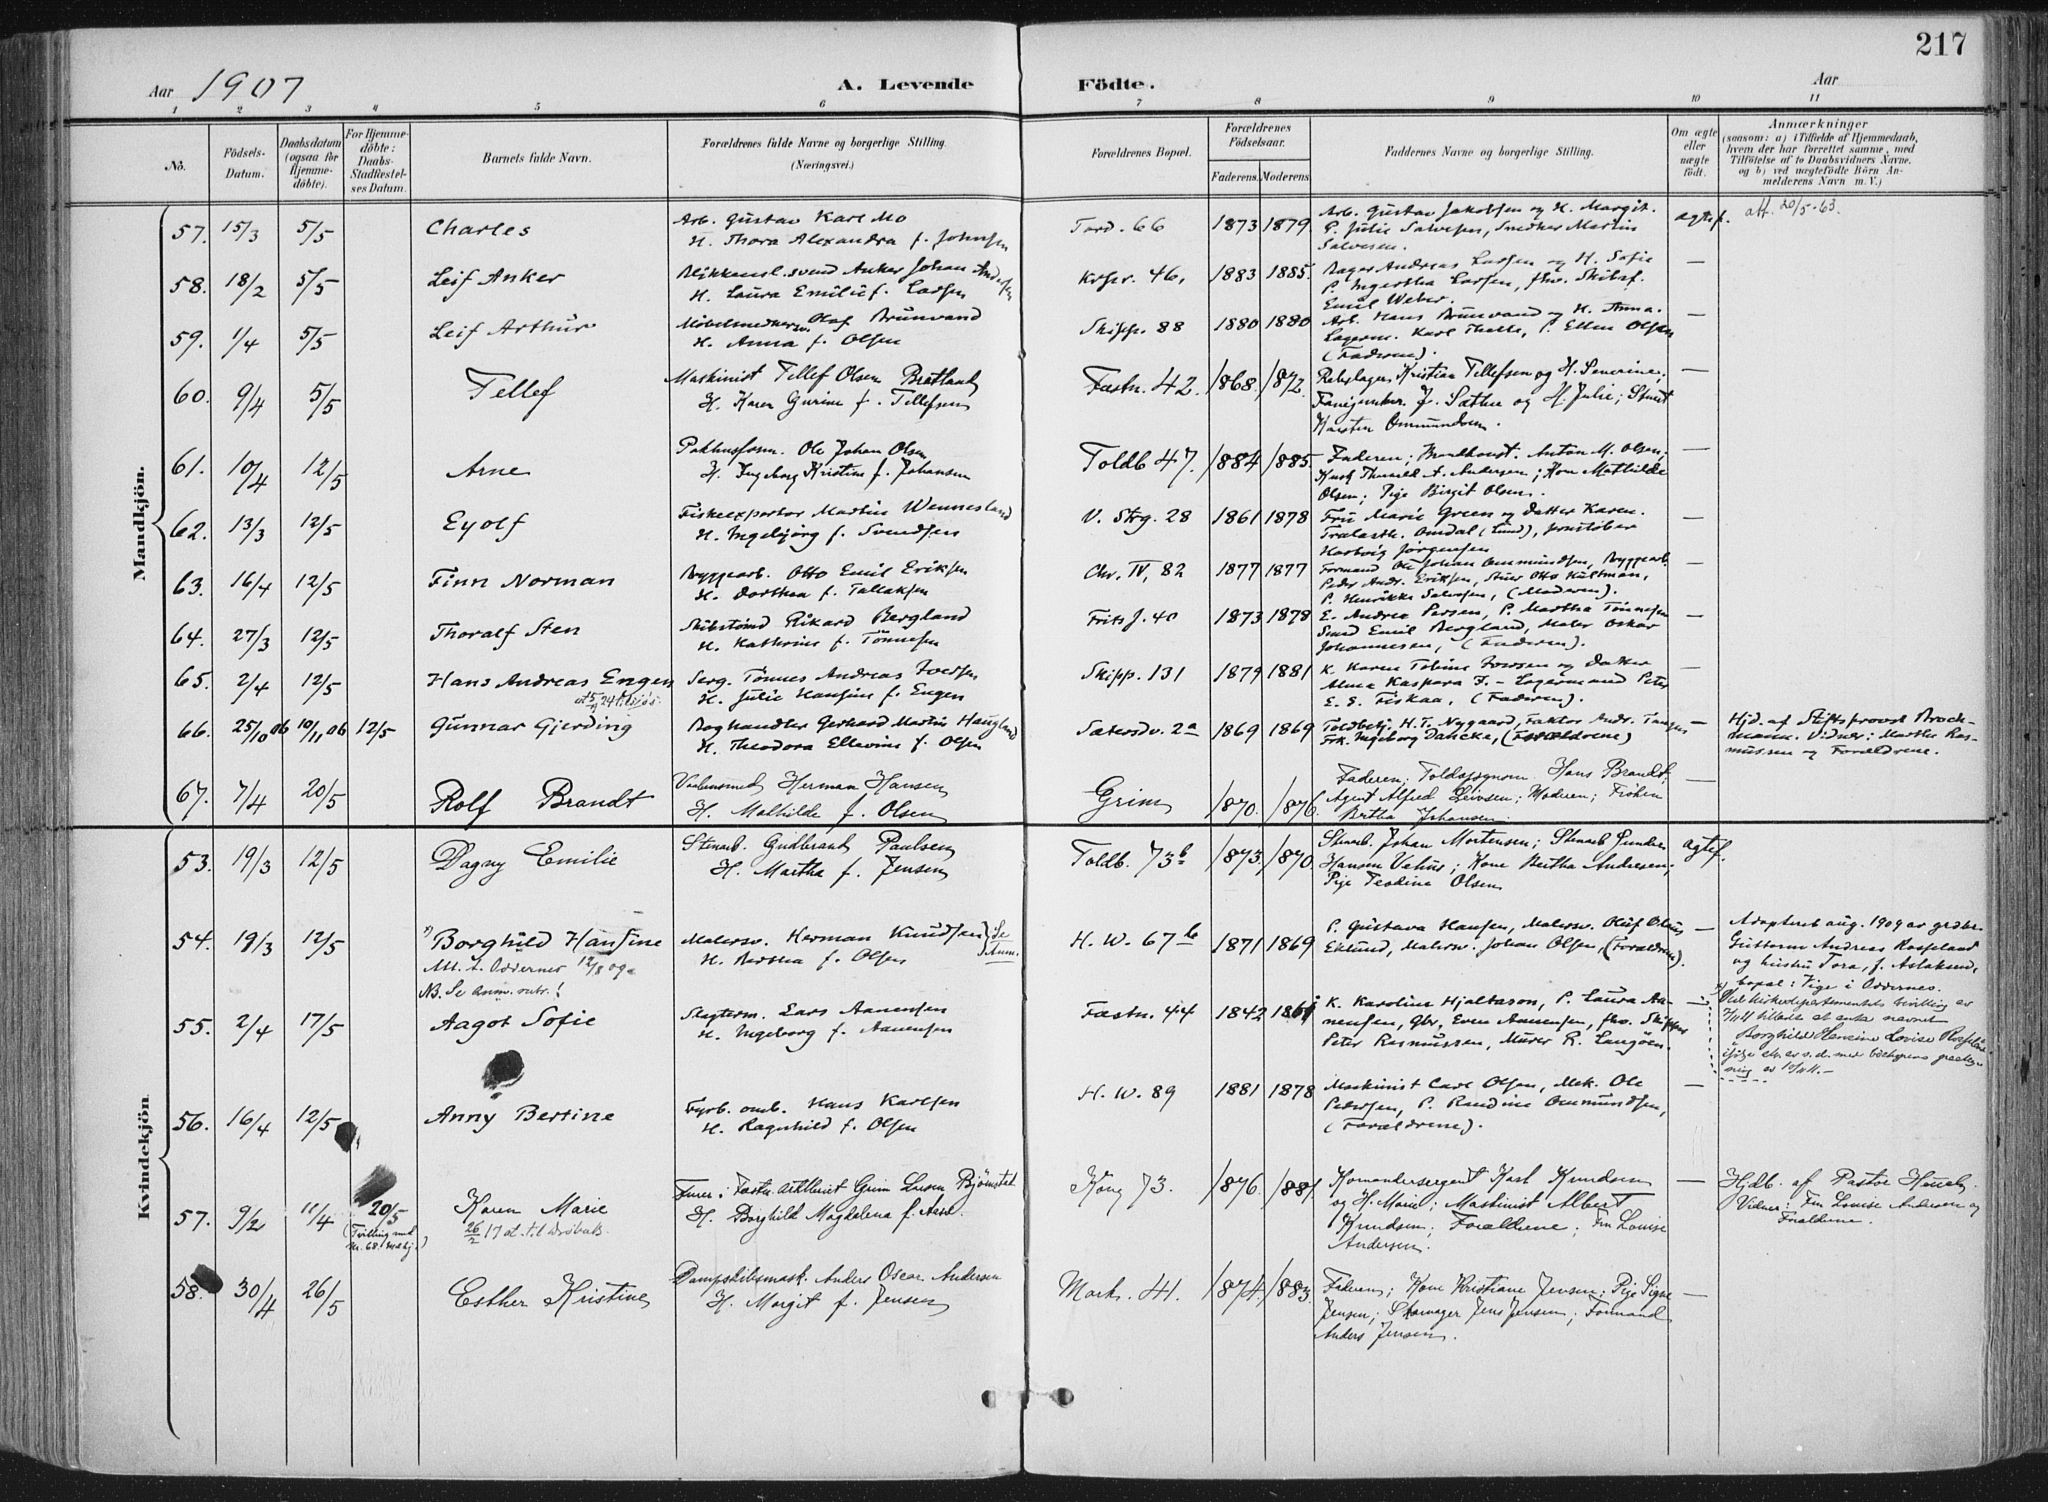 217
Aar 1907
A. Levende Födte.
Aar
1 2 3 4 5 6 7 8 9 10 11
No.
Födsels-Datum.
Daabsdatum (ogsaa for Hjemme-döbte).
For Hjemme-döbte: Daabs-Stadfæstel-ses Datum.
Barnets fulde Navn.
Forældrenes fulde Navne og borgerlige Stilling. (Næringsvei.)
Forældrenes Bopæl.
Forældrenes Födselsaar.
Faderens. Moderens.
Faddernes Navne og borgerlige Stilling.
Om ægte eller uægte født.
Anmærkninger
(saasom: a) i Tilfælde af Hjemmedaab,
hvem der har forrettet samme, med
Tilföielse af to Daabsvidners Navne.
og b) ved uægtefödte Börn An-
melderens Navn m. V.)
Mandkjön.
57. 15/3 5/5 Charles Arb. Gustav Karl Mo Tord. 66 1873 1879 Arb. Gustav Jakobsen og H. Margit. ægtef. att. 20/5-63.
H. Thora Alexandra f. Johnsen P. Julie Salvesen, Snedker Martin
Salvesen.
58. 18/2 5/5 Leif Anker Blikkensl. svend Anker Johan Andersen Krpr. 46, 1883 1885. Bager Andreas Larsen og H. Sofie —
H. Laura Emilie f. Larsen P. Ingertha Larsen, fhv. Skibsf.
Emil Weber.
59. 1/4 5/5 Leif Arthur Möbelsnedkersv. Olaf Brunvand Skipp. 88 1880 1880 Arb. Hans Brunvand og H. Anna. —
H. Anna f. Olsen Lagerm. Karl Thelle, P. Ellen Olsen
(Faderen).
60. 9/4 5/5 Tellef Maskinist Tellef Olsen Bratland Fæstn. 42. 1868. 1872. Rebslager Kristian Tellefsen og H. Severine; —
H. Karen Gurine f. Tellefsen Fanejunker J. Sæthre og H. Julie; Stuert
Karsten Ommundsen.
61. 10/4 12/5 Arne Pakhusform. Ole Johan Olsen Toldb 47. 1884 1885. Faderen; Anton M. Olsen; —
H. Ingeborg Kristine f. Johansen Andersen; Kone Mathilde
Olsen; Pige Birgit Olsen.
62. 13/3 12/5 Eyolf Fiskeexportør Martin Wennesland V. Strg. 28 1861 1878 Fru Marie Green og Datter Karen. —
H. Ingebjørg f. Svendsen Trælasth. Omdal (Lund),
Hartvig Jørgensen
63. 16/4 12/5 Finn Norman Byggearb. Otto Emil Eriksen Chr. IV, 82 1877 1877 Formand Ole Johan Ommundsen, Byggearb. —
H. Dorthea f. Tallaksen Peder Andr. Eriksen, Stuer Otto Hultman,
P. Henrikke Salvesen, (Moderen).
64. 27/3 12/5 Thoralf Sten Skibstömd Rikard Bergland Frits J. 40 1873 1878 E. Andrea Persen, P. Martha Tönnesen —
H. Kathrine f. Tönnesen Smed Emil Bergland, Maler Oskar
Johannesen, (Faderen).
65. 2/4 12/5 Hans Andreas Engen Serg. Tönnes Andreas Iversen Skipp. 131 1879 1881 K. Karen Tobine Iversen og Datter —
H. Julie Hansine f. Engen Alma Kaspara I. - Lagermand Peter
E. E. Fiskaa, (Faderen).
66. 25/10 06 10/11 06 12/5 Gunnar Gjerding Boghandler Gerhard Martin Haugland Sætersdv. 2a 1869 1869 Toldbetj. H. T. Nygaard, Faktor Andr. Tanges — Hjd. af Stiftsprovst Brock-
H. Theodora Ellevine f. Olsen Frk. Ingeborg Dancke, (Forældrene) mann. Vidner: Martha Ras-
mussen og Forældrene.
67. 7/4 20/5 Rolf Brandt Herman Hansen Grim 1870. 1876. Faderen; Toldassynom. Hans Brandt; —
H. Mathilde f. Olsen Agent Alfred Leivsen; Moderen; Frøken
Bertha Johansen.
Kvindekjön
53. 19/3 12/5 Dagny Emilie Stenarb. Gudbrand Paulsen Toldb. 73b 1873. 1870. Stenarb. Johan Mortensen; Stenarb Gunder ægtef.
H. Martha f. Jensen Hansen Vehus; Kone Bertha Andresen;
Pige Teodine Olsen
54. 19/3 12/5 Borghild Hansine Malersv. Herman Knudsen Se Anm. H. W. 67b 1871 1869 P. Gustava Hansen, Malersv. Oluf Olius — Adopteret aug. 1909 av gårdbr.
Att. t. Oddernes 12/8 09 H. Bertha f. Olsen Eklund, Malersv. Johan Olsen, (Forældrene). Guttorm Andreas Rosseland
NB. Se anm. rubr.! og hustru Tora, f. Aslaksen,
bopæl: Tige i Oddernes.
55. 2/4 17/5 Aagot Sofie Slagterm. Lars Aanensen Fæstn. 44 1842 1861 K. Karoline Hjaltason, P. Laura Aa- — Ved kirkedepartementets bevilling av
H. Ingeborg f. Aanensen nensen, Gbr. Even Aanensen, fhv. Skipper tillatt at anta navnet
Peter Rasmussen, Murer R. Langöen. Borghild Hansine Lovise Rosseland
56. 16/4 12/5 Anny Bertine Fyrb. omb. Hans Karlsen H. W. 89 1881 1878 Maskinist Carl Olsen, Mek. Ole —
H. Ragnhild f. Olsen Pedersen, P. Randine Ommundsen,
(Forældrene).
57. 9/2 11/4 20/5 Karen Marie Furer i Fæstn. Artilleriet Grim Larsen Björnstad Kong 73. 1876. 1881. Kommandersergent Karl Knudsen — Hjdb. af Pastor
(Tvilling med Nr. 68. Mdkj.) 26/2 17 at. til Drøbak. H. Borghild Magdalena f. Aas. og H. Marie; Maskinist Albert Vidner: Frk Louise Andersen og
Knudsen; Forældrene; Frk Louise Forældrene.
Andersen.
58. 30/4 26/5 Esther Kristine Dampskibsmask. Anders Oscar Andersen Mark. 41. 1874. 1883. Faderen; Kone Kristiane Jensen; Pige Signe —
H. Margit f. Jensen Jensen; Svoger Jens Jensen; Formand
Anders Jensen.